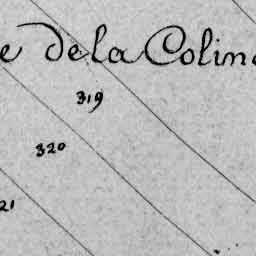 e de la Colin
319
320
21